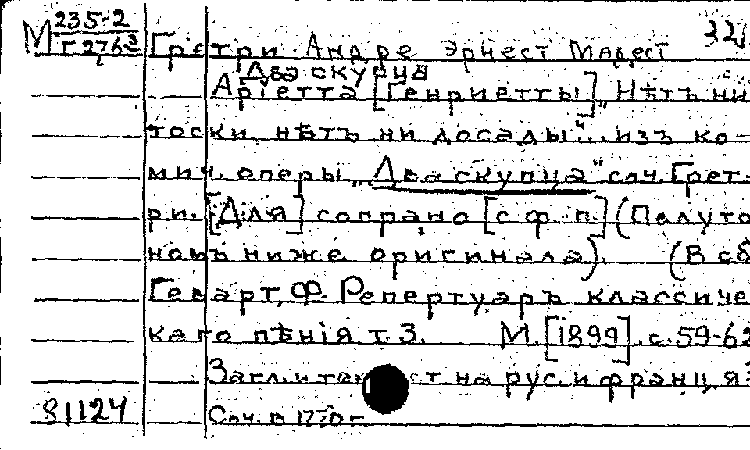 М 235-2
Г 276 3 Гретри Андре Эрнест Модест 32/
Два скупца
Аріетта [Генриетты] „Нѣтъ ни
тоски, нѣтъ ни досады"... изъ ко-
мич. оперы „Два скупца" соч. Грет-
ри. [Для] сопрано [с ф. п.] (Полуто
номъ ниже оригинала). (В сб
Геварт, Ф. Репертуаръ классиче
каго пѣнія т. 3. М. [1899]. с. 59-62
Загл. и текст на рус. и франц. яз
81124 Соч. в 1770 г.